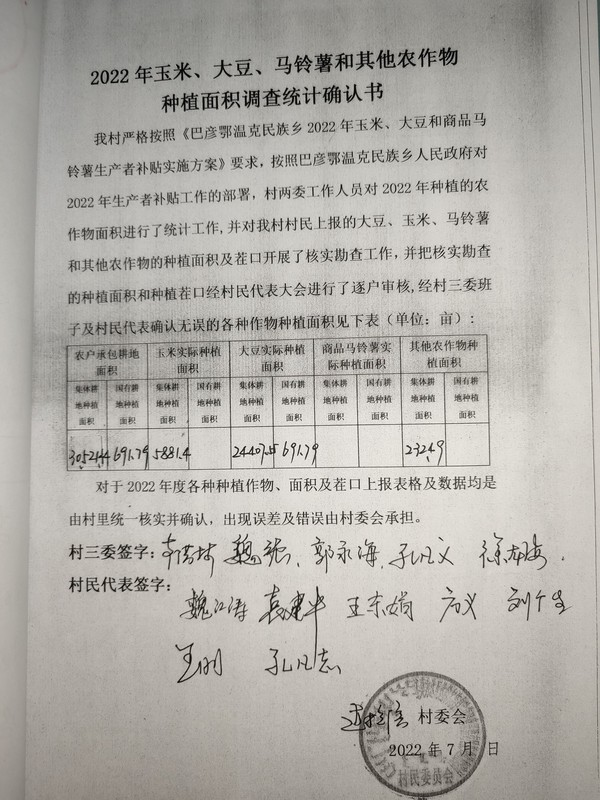 2022 年玉米、大豆、马铃薯和其他农作物
种植面积调查统计确认书
我村严格按照《巴彦鄂温克民族乡 2022 年玉米、大豆和商品马
铃薯生产者补贴实施方案》要求，按照巴彦鄂温克民族乡人民政府对
2022 年生产者补贴工作的部署，村两委工作人员对 2022 年种植的农
作物面积进行了统计工作,并对我村村民上报的大豆、玉米、马铃薯
和其他农作物的种植面积及茬口开展了核实勘查工作，并把核实勘查
的种植面积和种植茬口经村民代表大会进行了逐户审核,经村三委班
子及村民代表确认无误的各种作物种植面积见下表（单位：亩）:
农户承包耕地 玉米实际种植 大豆实际种植 商品马铃薯实 其他农作物种
面积 面积 面积 际种植面积 植面积
集体耕 国有耕 集体耕 国有耕 集体耕 国有耕 集体耕 国有耕 集体耕 国有耕
地种植 地种植 地种植 地种植 地种植 地种植 地种植 地种植 地种植 地种植
面积 面积 面积 面积 面积 面积 面积 面积 面积 面积
691.79 5881.4 691.79
对于 2022 年度各种种植作物、面积及茬口上报表格及数据均是
由村里统一核实并确认，出现误差及错误由村委会承担。
村三委签字: 魏强、郭永海、孔凡义
村民代表签字:
魏江涛 袁建华 王东娟
孔凡志
村委会
2022 年 7 月 日
村民委员会